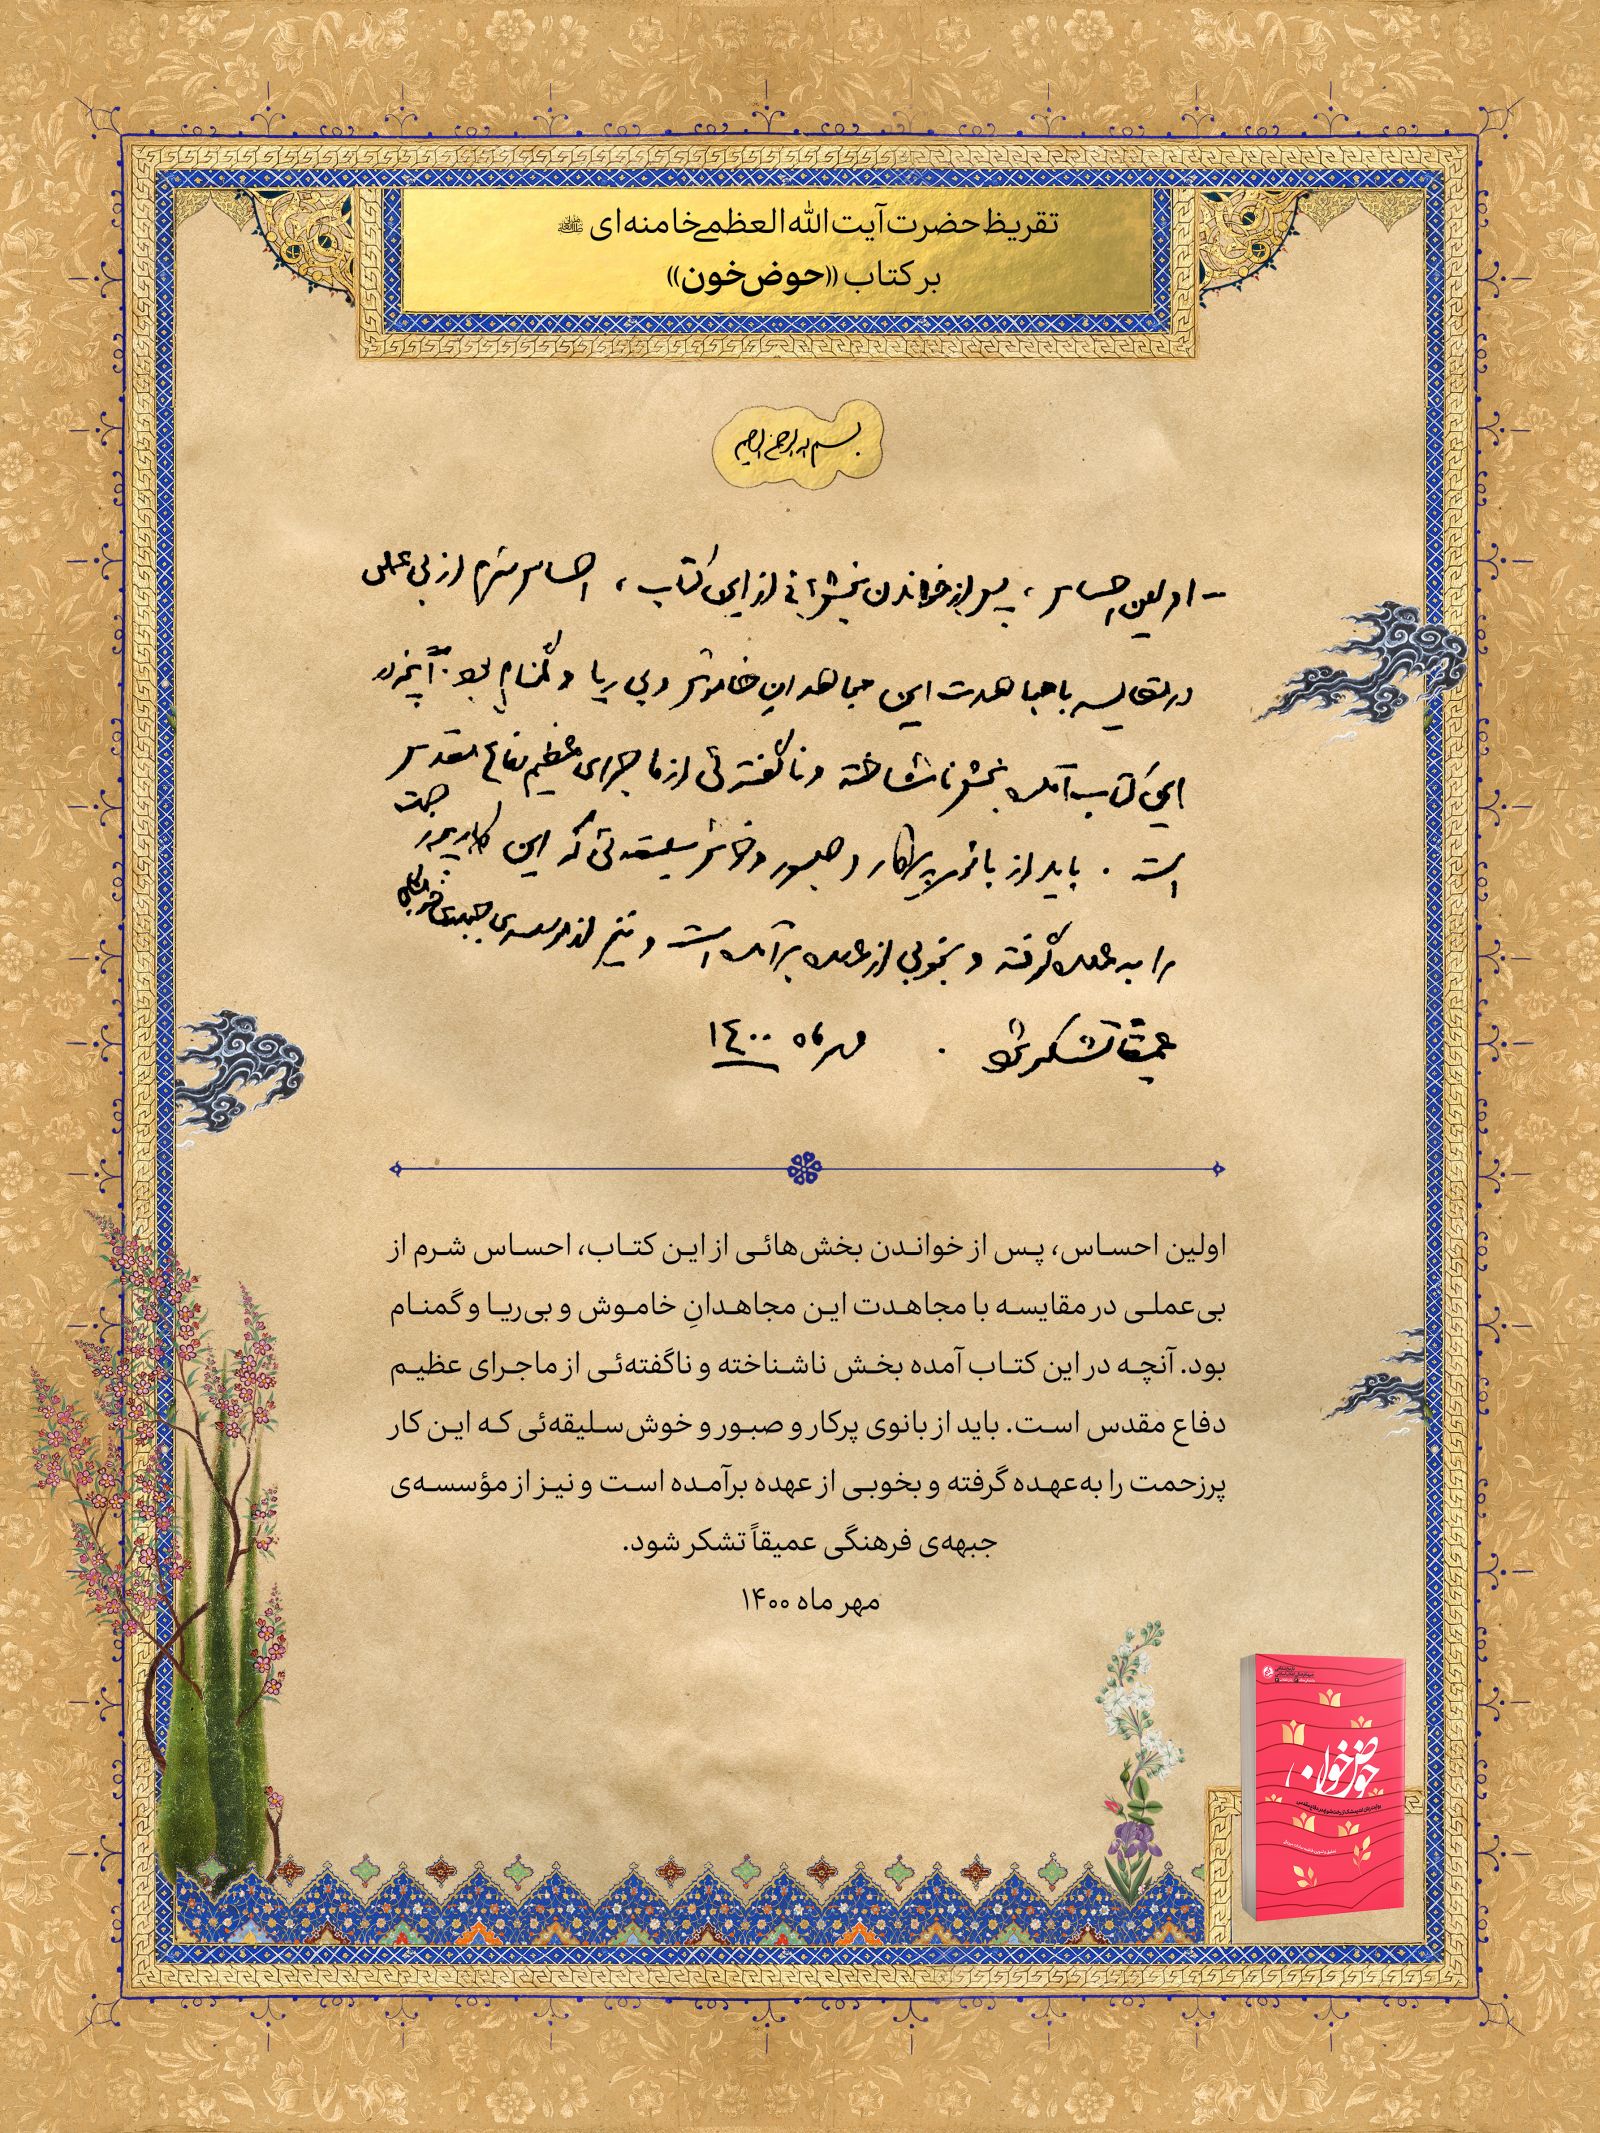 تقریظ حضرت آیت الله العظمی خامنه‌ای
بر کتاب «حوض خون»
بسم الله الرحمن الرحیم
- اولین احساس، پس از خواندن بخشهائی از این کتاب، احساس شرم از بی‌عملی
در مقایسه با مجاهدت این مجاهدانِ خاموش و بی ریا و گمنام بود. آنچه در
این کتاب آمده بخش ناشناخته و ناگفته‌ئی از ماجرای عظیم دفاع مقدس
است. باید از بانوی پرکار و صبور و خوش سلیقه‌ئی که این کار پرزحمت
را به عهده گرفته و بخوبی از عهده برآمده است و نیز از مؤسسه‌ی جبهه‌ی فرهنگی
عمیقاً تشکر شود. مهر ماه ۱۴۰۰
اولین احساس، پس از خواندن بخش‌هائی از این کتاب، احساس شرم از
بی‌عملی در مقایسه با مجاهدت این مجاهدانِ خاموش و بی‌ریا و گمنام
بود. آنچه در این کتاب آمده بخش ناشناخته و ناگفته‌ئی از ماجرای عظیم
دفاع مقدس است. باید از بانوی پرکار و صبور و خوش‌سلیقه‌ئی که این کار
پرزحمت را به‌عهده گرفته و بخوبی از عهده برآمده است و نیز از مؤسسه‌ی
جبهه‌ی فرهنگی عمیقاً تشکر شود.
مهر ماه ۱۴۰۰
حوض خون